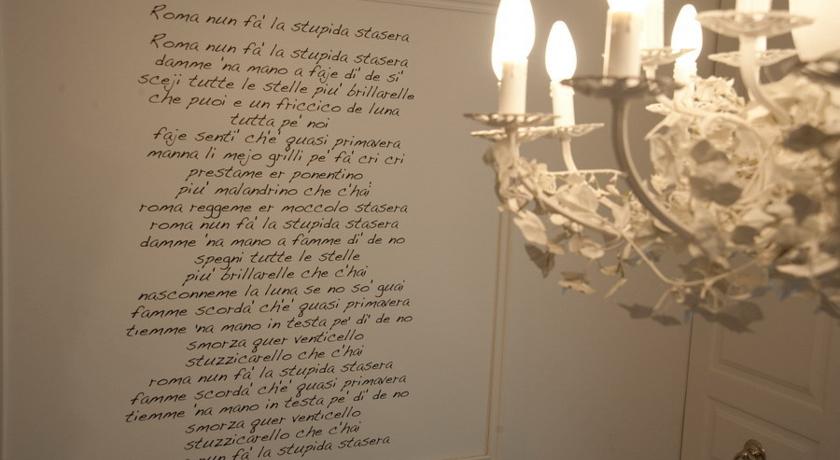 Roma nun fa' la stupida stasera
Roma nun fa' la stupida stasera
damme 'na mano a faje di' de si'
sceji tutte le stelle piu' brillarelle
che puoi e un friccico de luna
tutta pe' noi
faje senti' ch'e' quasi primavera
manna li mejo grilli pe' fa' cri cri
prestame er ponentino
piu' malandrino che c'hai
roma reggeme er moccolo stasera
roma nun fa' la stupida stasera
damme 'na mano a famme di' de no
spegni tutte le stelle
piu' brillarelle che c'hai
nasconneme la luna se no so' guai
famme scorda' ch'e' quasi primavera
tiemme 'na mano in testa pe' di' de no
smorza quer venticello
stuzzicarello che c'hai
roma nun fa' la stupida stasera
famme scorda' ch'e' quasi primavera
tiemme 'na mano in testa pe' di' de no
smorza quer venticello
stuzzicarello che c'hai
nun fa' la stupida stasera